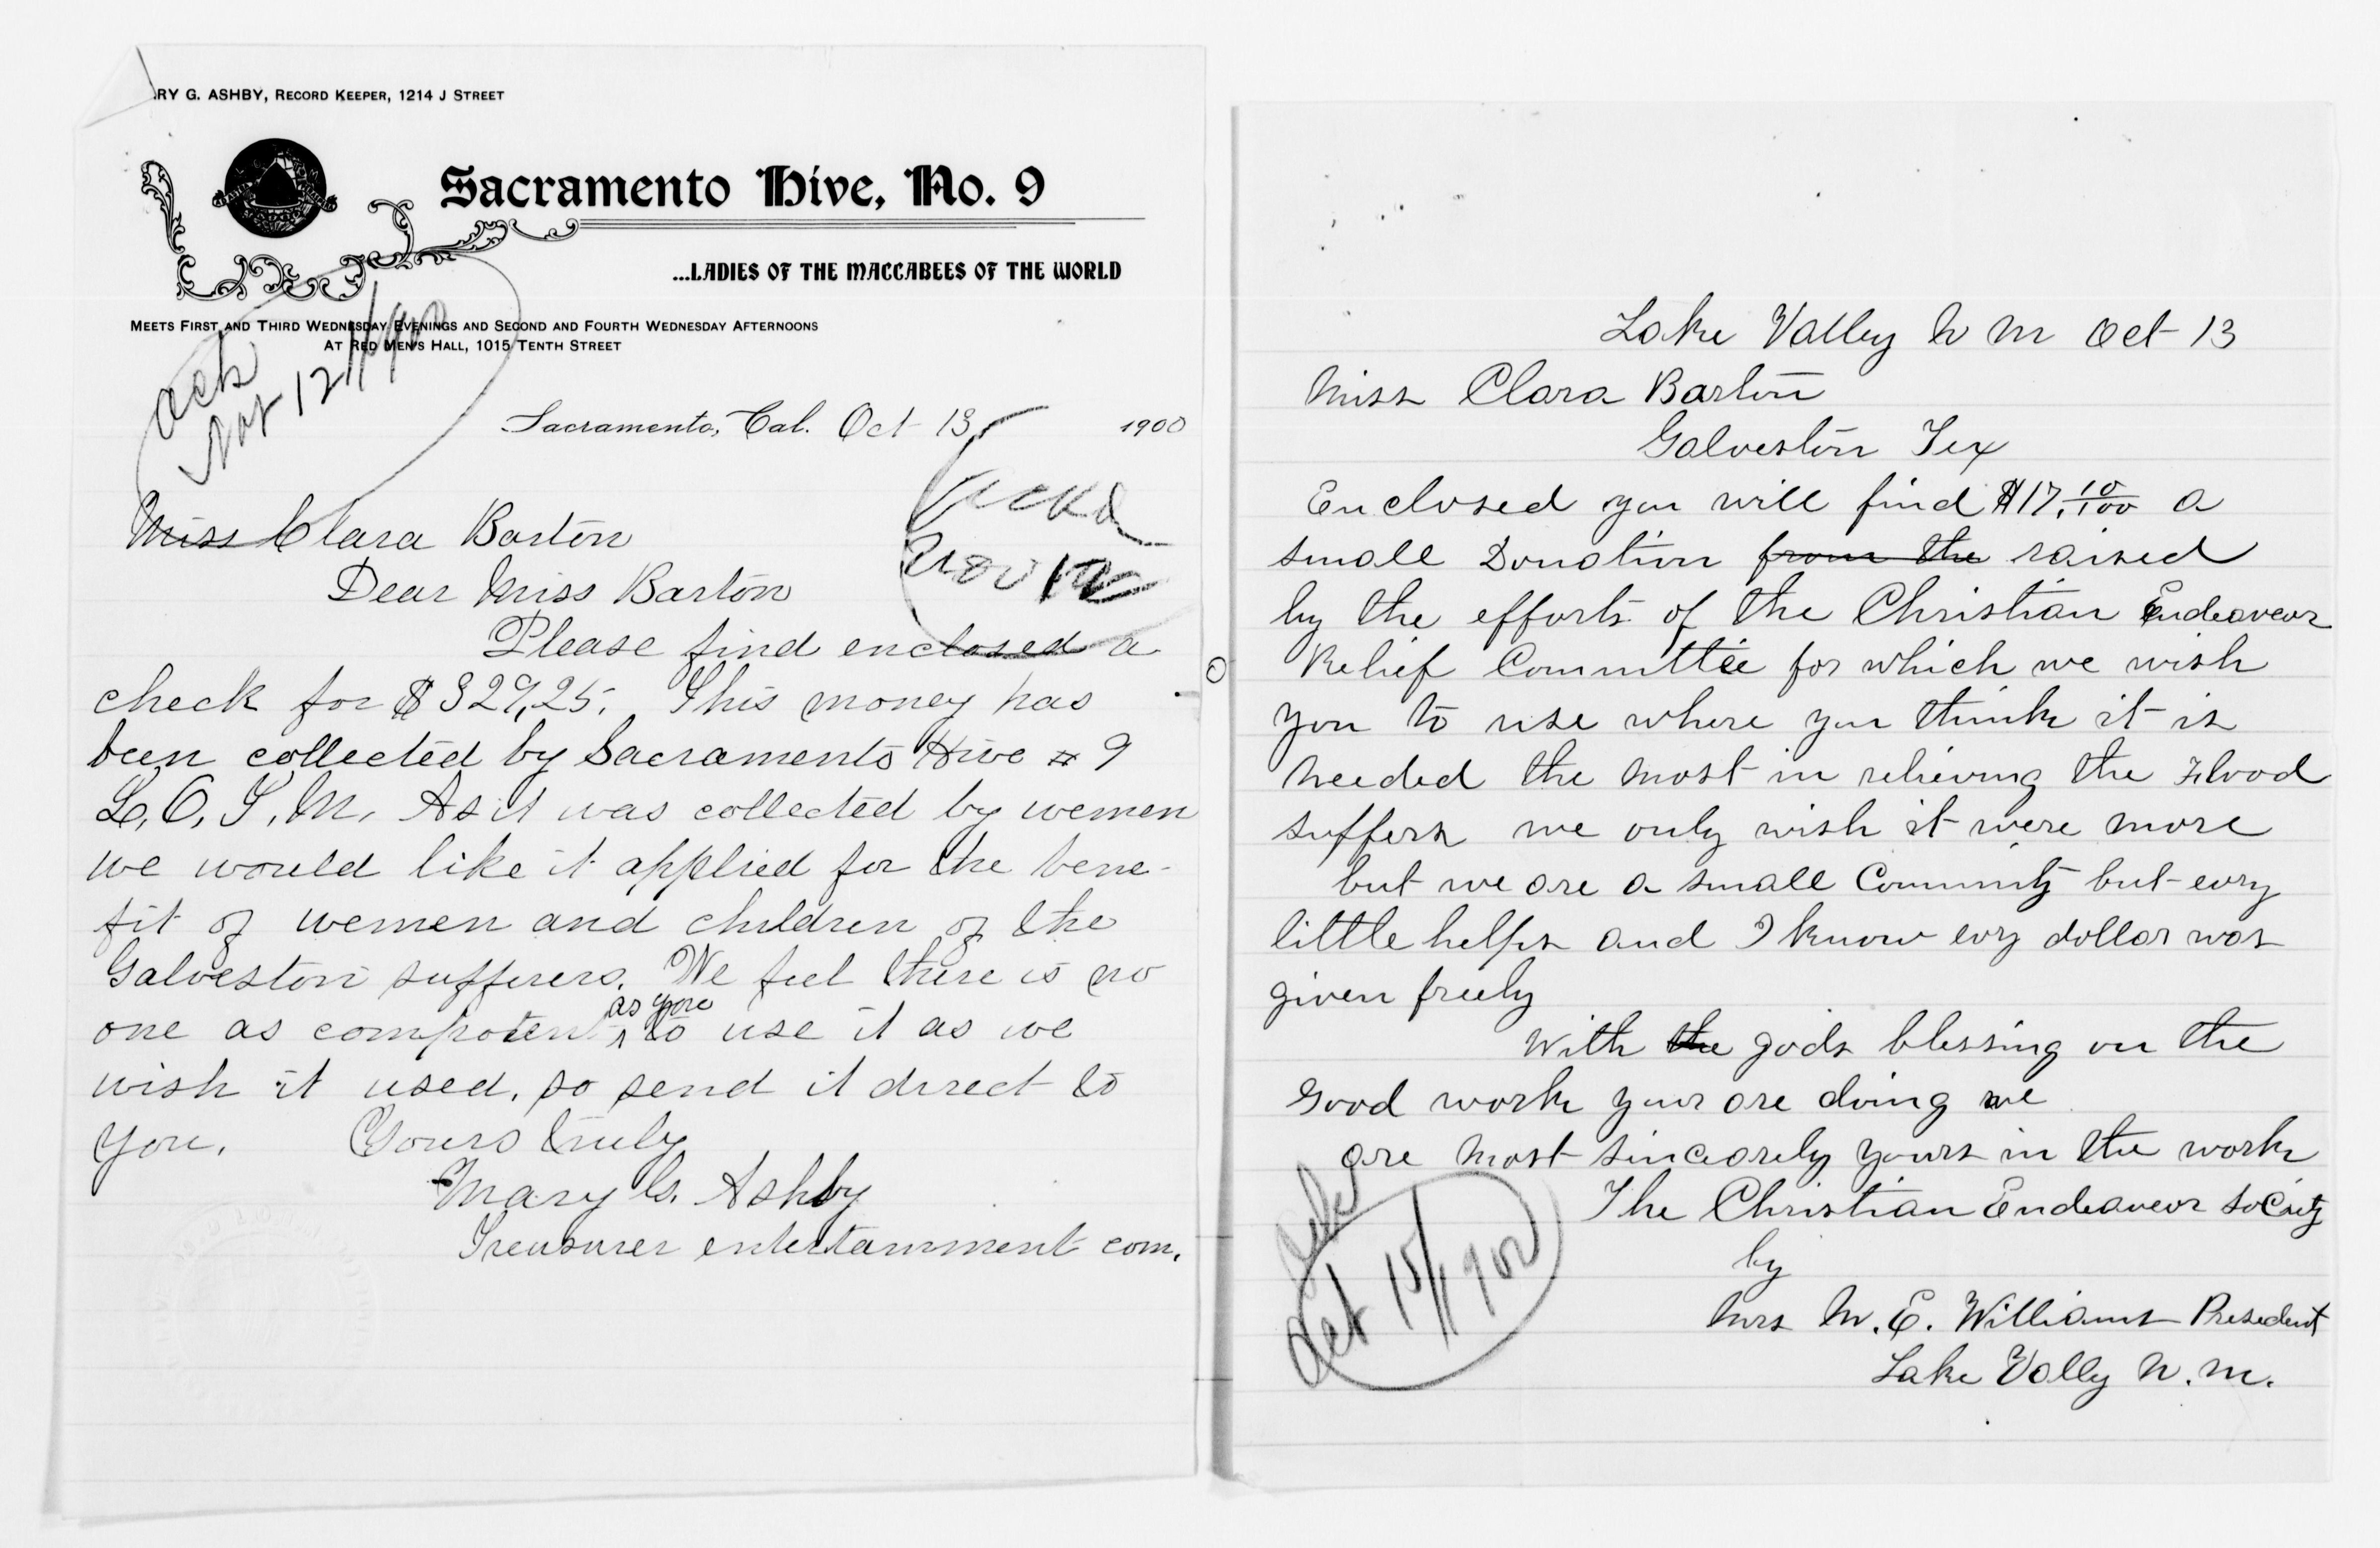 RY G. ASHBY, RECORD KEEPER, 1214 J STREET
Sacramento Hive, No. 9
...LADIES OF THE MACCABEES OF THE WORLD
MEETS FIRST AND THIRD WEDNESDAY EVENINGS AND SECOND AND FOURTH WEDNESDAY AFTERNOONS
AT RED MEN'S HALL, 1015 TENTH STREET
Ack
Nov 12/1900
Sacramento, Cal. Oct 13 1900
Ackd
Nov 12
Miss Clara Barton
Dear Miss Barton
Please find enclosed a
check for $329,25. This money has
been collected by Sacramento Hive # 9
L, O, T, M, As it was collected by women
we would like it applied for the bene-
fit of women and children of the
Galveston sufferers. We feel there is no
one as competent as you to use it as we
wish it used, so send it direct to
you. Yours truly
Mary G. Ashby
Treasurer entertainment com.
Lake Valley N M Oct 13
Miss Clara Barton
Galveston Tex
Enclosed you will find $17.10/100 a
small Donation from the raised
by the efforts of the Christian Endeaveor
Relief Committee for which we wish
you to use where you think it is
needed the most in relieving the Flood
suffers we only wish it were more
but we are a small Community but evry
little helps and I know evry dollar was
given freely
With the gods blessing on the
Good work your are doing we
are most sincearely yours in the work
The Christian Endeaveor Society
by
Mrs M. E. Williams President
Lake Vally N. M.
Ack
Oct 15/1900